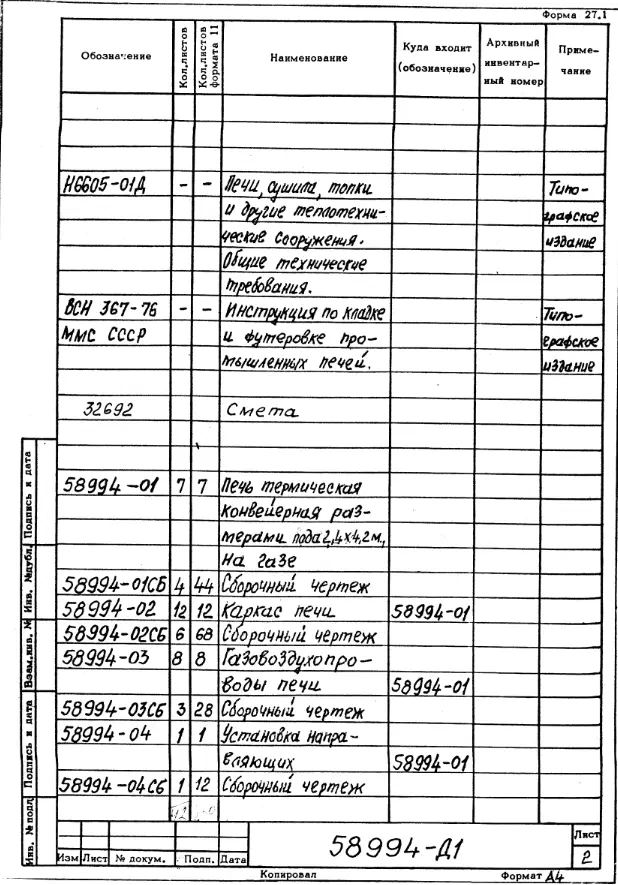 Форма 27.1
Обозначение Кол.листов Кол.листов формата 11 Наименование Куда входит (обозначение) Архивный инвентар- ный номер Приме- чание
Н6605-01Д – – Печи, сушила, топки Типо-
и другие теплотехни- графское
ческие сооружения. издание
Общие технические
требования.
ВСН 367-76 – – Инструкция по кладке Типо-
ММС СССР и футеровке про- графское
мышленных печей. издание
32692 Смета
58994-01 7 7 Печь термическая
конвейерная раз-
мерами пода 2,4х4,2м,
на газе
58994-01СБ 4 44 Сборочный чертеж
58994-02 12 12 Каркас печи 58994-01
58994-02СБ 6 68 Сборочный чертеж
58994-03 8 8 Газовоздухопро-
воды печи 58994-01
58994-03СБ 3 28 Сборочный чертеж
58994-04 1 1 Установка напра-
вляющих 58994-01
58994-04СБ 1 12 Сборочный чертеж
Инв. № подл.
Подпись и дата
Взам.инв. №
Инв. №дубл.
Подпись и дата
58994-Д1
Лист
2
Изм Лист № докум. Подп. Дата
Копировал Формат А4